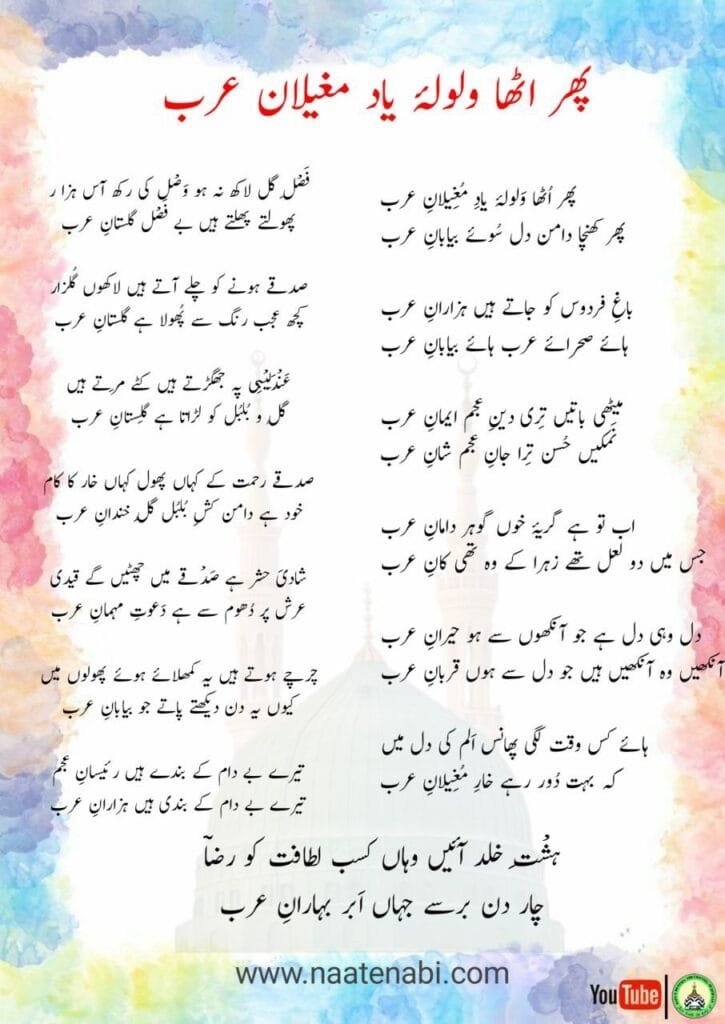 پھر اٹھا ولولۂ یاد مغیلان عرب
پھر اُٹھا وَلولۂ یادِ مُغِیلانِ عرب
پھر کھنچا دامن دل سُوئے بیابانِ عرب
باغِ فردوس کو جاتے ہیں ہزارانِ عرب
ہائے صحرائے عرب ہائے بیابانِ عرب
میٹھی باتیں تِری دینِ عجم ایمانِ عرب
نمکیں حُسن تِرا جانِ عجم شانِ عرب
اب تو ہے گریۂ خوں گوہر دامانِ عرب
جس میں دو لعل تھے زہرا کے وہ تھی کانِ عرب
دل وہی دل ہے جو آنکھوں سے ہو حیرانِ عرب
آنکھیں وہ آنکھیں ہیں جو دل سے ہوں قربانِ عرب
ہائے کس وقت لگی پھانس اَلم کی دل میں
کہ بہت دُور رہے خارِ مُغِیلانِ عرب
فَصْلِ گل لاکھ نہ ہو وَصْل کی رکھ آس ہزار
پھولتے پھلتے ہیں بے فَصْل گلستانِ عرب
صدقے ہونے کو چلے آتے ہیں لاکھوں گُلزار
کچھ عجب رنگ سے پُھولا ہے گلستانِ عرب
عَنْدَلِیْبی پہ جھگڑتے ہیں کٹے مرتے ہیں
گل و بُلبُل کو لڑاتا ہے گلِستانِ عرب
صدقے رحمت کے کہاں پھول کہاں خار کا کام
خود ہے دامن کشِ بُلبُل گلِ خندانِ عرب
شادیٔ حشر ہے صَدْقے میں چھٹیں گے قیدی
عرش پر دُھوم سے ہے دَعوتِ مہمانِ عرب
چرچے ہوتے ہیں یہ کمھلائے ہوئے پھولوں میں
کیوں یہ دن دیکھتے پاتے جو بیابانِ عرب
تیرے بے دام کے بندے ہیں رئیسانِ عجم
تیرے بے دام کے بندی ہیں ہزارانِ عرب
ہشت خلد آئیں وہاں کسب لطافت کو رضاؔ
چار دن برسے جہاں اَبر بہارانِ عرب
www.naatenabi.com
YouTube